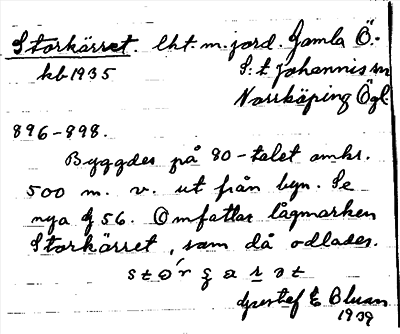 Storkärret. lht. m. jord. Gamla Ö.
kb 1935 S:t Johannis sn
Norrköping Ögl.
896-898.
Byggdes på 80-talet omkr.
500 m. v. ut från byn. Se
nya 56. Omfattar lågmarken
Storkärret, som då odlades.
Gustaf E Bluan
1939